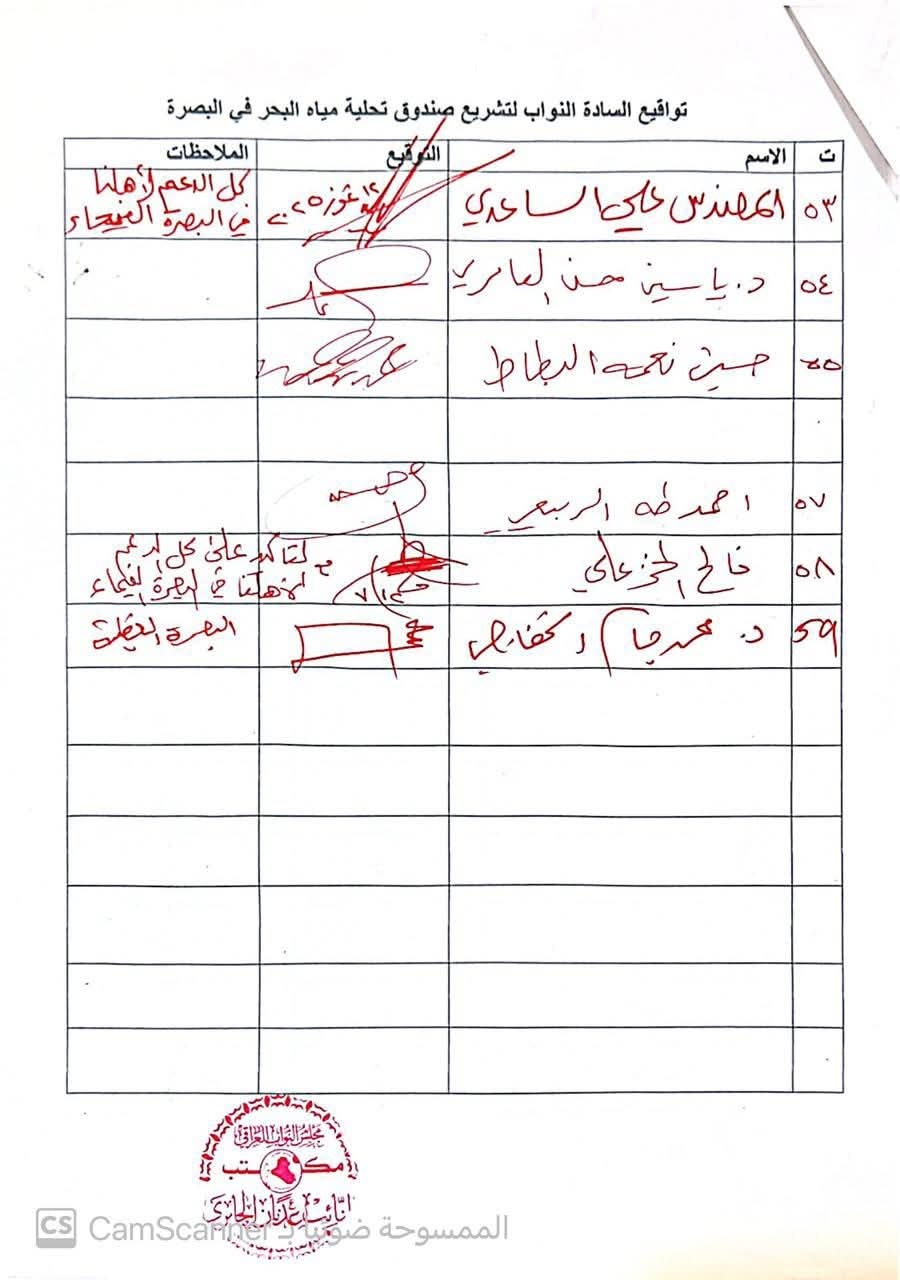 تواقيع السادة النواب لتشريع صندوق تحلية مياه البحر في البصرة
ت الاسم التوقيع الملاحظات
٥٣ المهندس علي الساعدي ١٢ تموز ٢٠٢٥ كل الدعم لأهلنا
في البصرة الفيحاء
٥٤ د. ياسين حسن العامري
٥٥ حسين نعمه البطاط
٥٧ احمد طه الربيعي
٥٨ فالح الخزعلي ٧/١٢ لتأكيد على كل الدعم
لأهلنا في البصرة الفيحاء
٥٩ د. محمد جاسم الخفاجي البصرة العظيمة
مجلس النواب العراقي
مكتب
النائب عدنان الجابري
CS CamScanner الممسوحة ضوئيا بـ